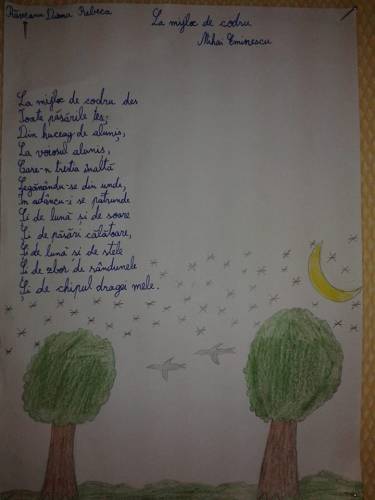 Diana Rebeca
La mijloc de codru
Mihai Eminescu
La mijloc de codru des
Toate păsările ies,
Din huceag de aluniș,
La voiosul aluniș,
Care-n trestia înaltă
Legănându-se din unde,
În adâncu-i se pătrunde
Și de lună și de soare
Și de păsări călătoare,
Și de lună și de stele
Și de zbor de rândunele
Și de chipul dragei mele.